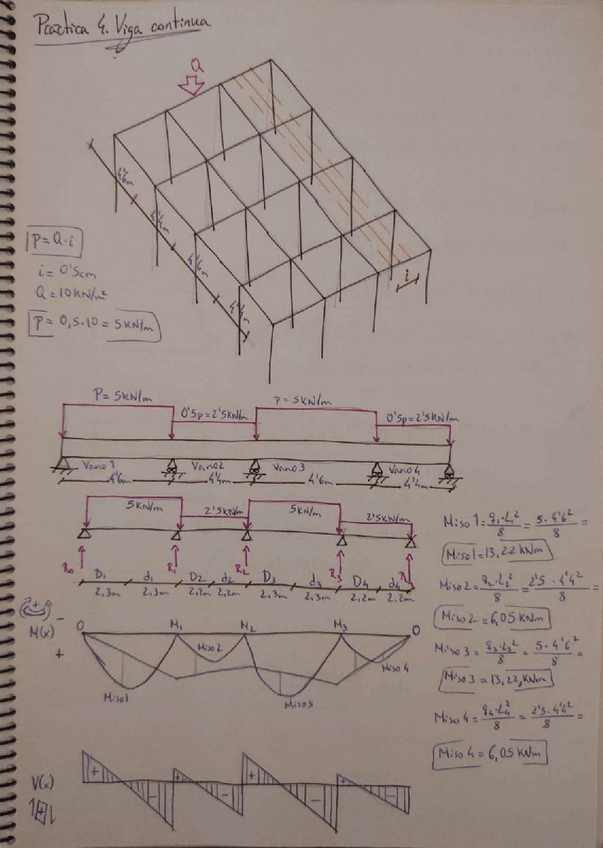 Práctica 4. Viga continua
Q
4'6m
4'4m
4'6m
4'4m
i
P = Q·i
i = 0'5cm
Q = 10 KN/m²
P = 0,5·10 = 5 KN/m
P = 5KN/m
0'5p = 2'5KN/m
P = 5KN/m
0'5p = 2'5KN/m
Vano 1
Vano 2
Vano 3
Vano 4
4'6m
4'4m
4'6m
4'4m
5KN/m
2'5KN/m
5KN/m
2'5KN/m
R₀
R₁
R₂
R₃
D₁
d₁
D₂
d₂
D₃
d₃
D₄
d₄
2,3m
2,3m
2,2m
2,2m
2,3m
2,3m
2,2m
2,2m
M(x)
-
+
0
M₁
M₂
M₃
0
Miso1
Miso2
Miso3
Miso4
V(x)
+
-
+
-
+
-
+
-
Miso 1 = q₁·L₁²/8 = 5·4'6²/8 =
Miso 1 = 13,22 KNm
Miso 2 = q₂·L₂²/8 = 2'5·4'4²/8 =
Miso 2 = 6,05 KNm
Miso 3 = q₃·L₃²/8 = 5·4'6²/8 =
Miso 3 = 13,22 KNm
Miso 4 = q₄·L₄²/8 = 2'5·4'4²/8 =
Miso 4 = 6,05 KNm